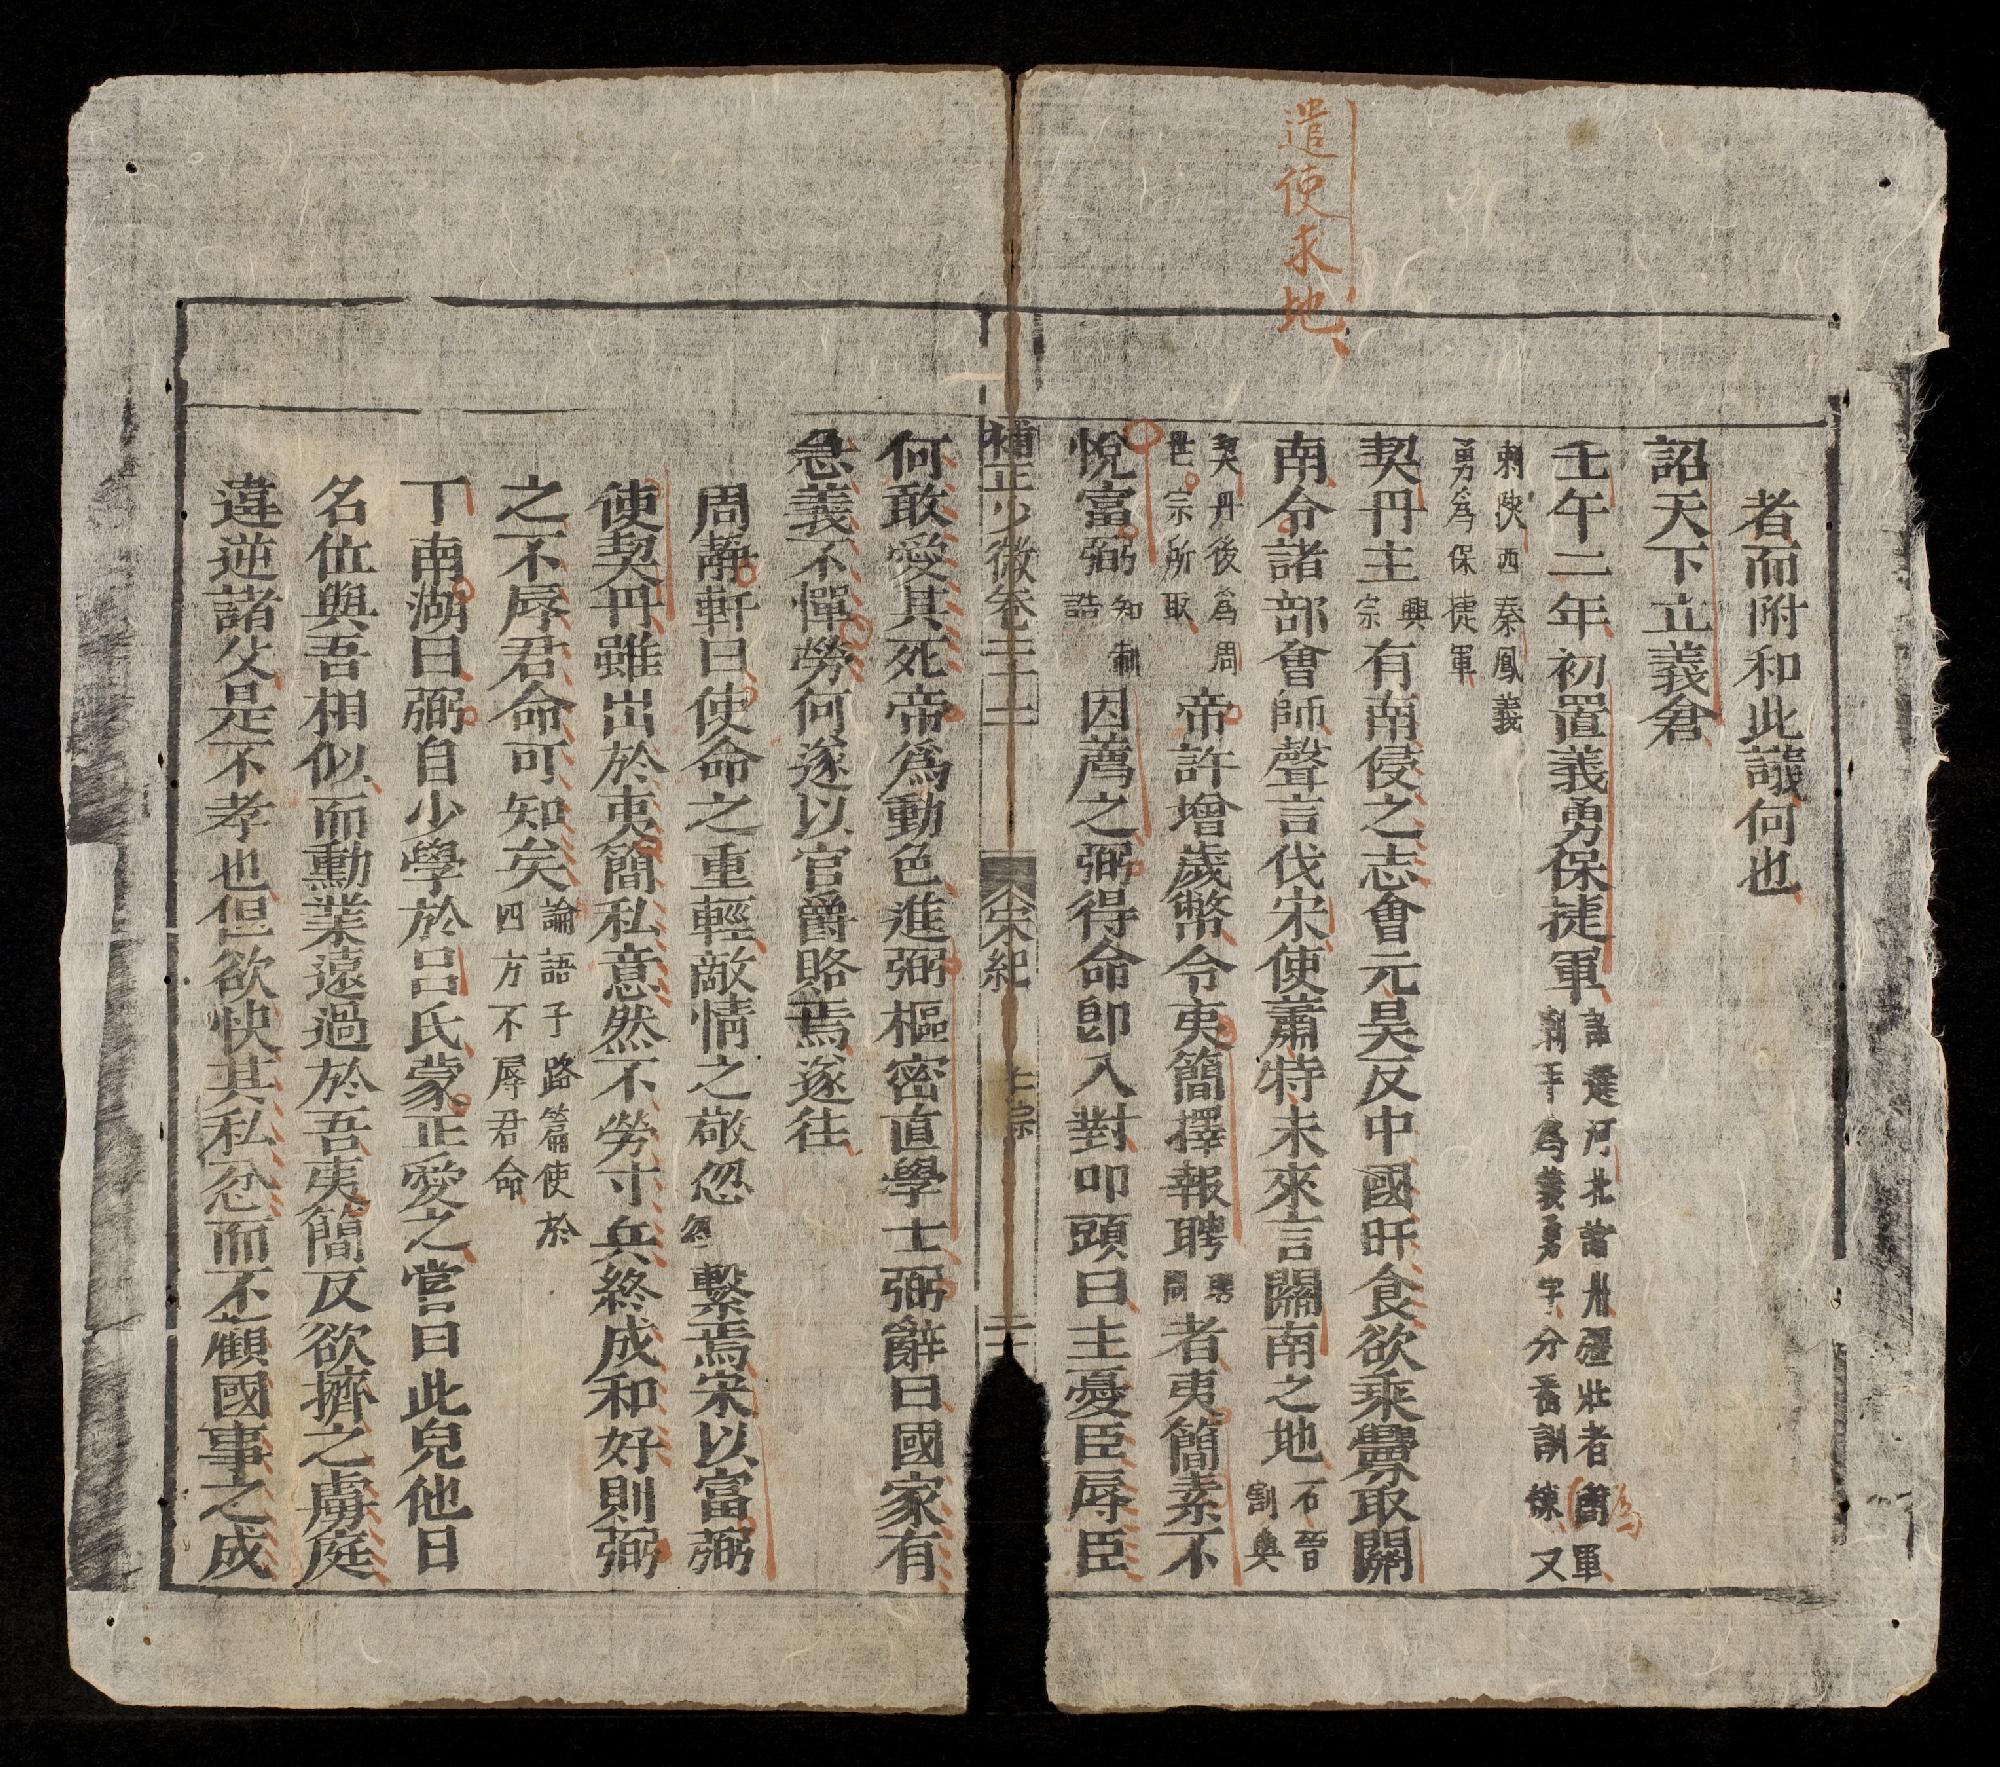 遣使求地
者而附和此議何也
詔天下立義倉
壬午二年初置義勇保捷軍詔選河北諸州強壯者簡軍刺手為義勇字分番訓練又
刺陝西秦鳳義勇為保捷軍
契丹主興宗有南侵之志會元昊反中國旰食欲乘釁取關
南令諸部會師聲言伐宋使蕭特末來言關南之地石晉割與
契丹後為周世宗所取帝許增歲幣令夷簡擇報聘者夷簡素不
悅富弼知制誥因薦之弼得命卽入對叩頭曰主憂臣辱臣
補正少微卷二十二
宋紀
仁宗
何敢愛其死帝為動色進弼樞密直學士弼辭曰國家有
急義不憚勞何遂以官爵賂焉遂往
周靜軒曰使命之重輕敵情之敬忽繫焉宋以富弼
使契丹雖出於夷簡私意然不勞寸兵終成和好則弼
之不辱君命可知矣論語子路篇使於四方不辱君命
丁南湖曰弼自少學於呂氏蒙正愛之嘗曰此兒他日
名位與吾相似而勳業遠過於吾夷簡反欲擠之虜庭
違逆諸父是不孝也但欲快其私忿而不顧國事之成